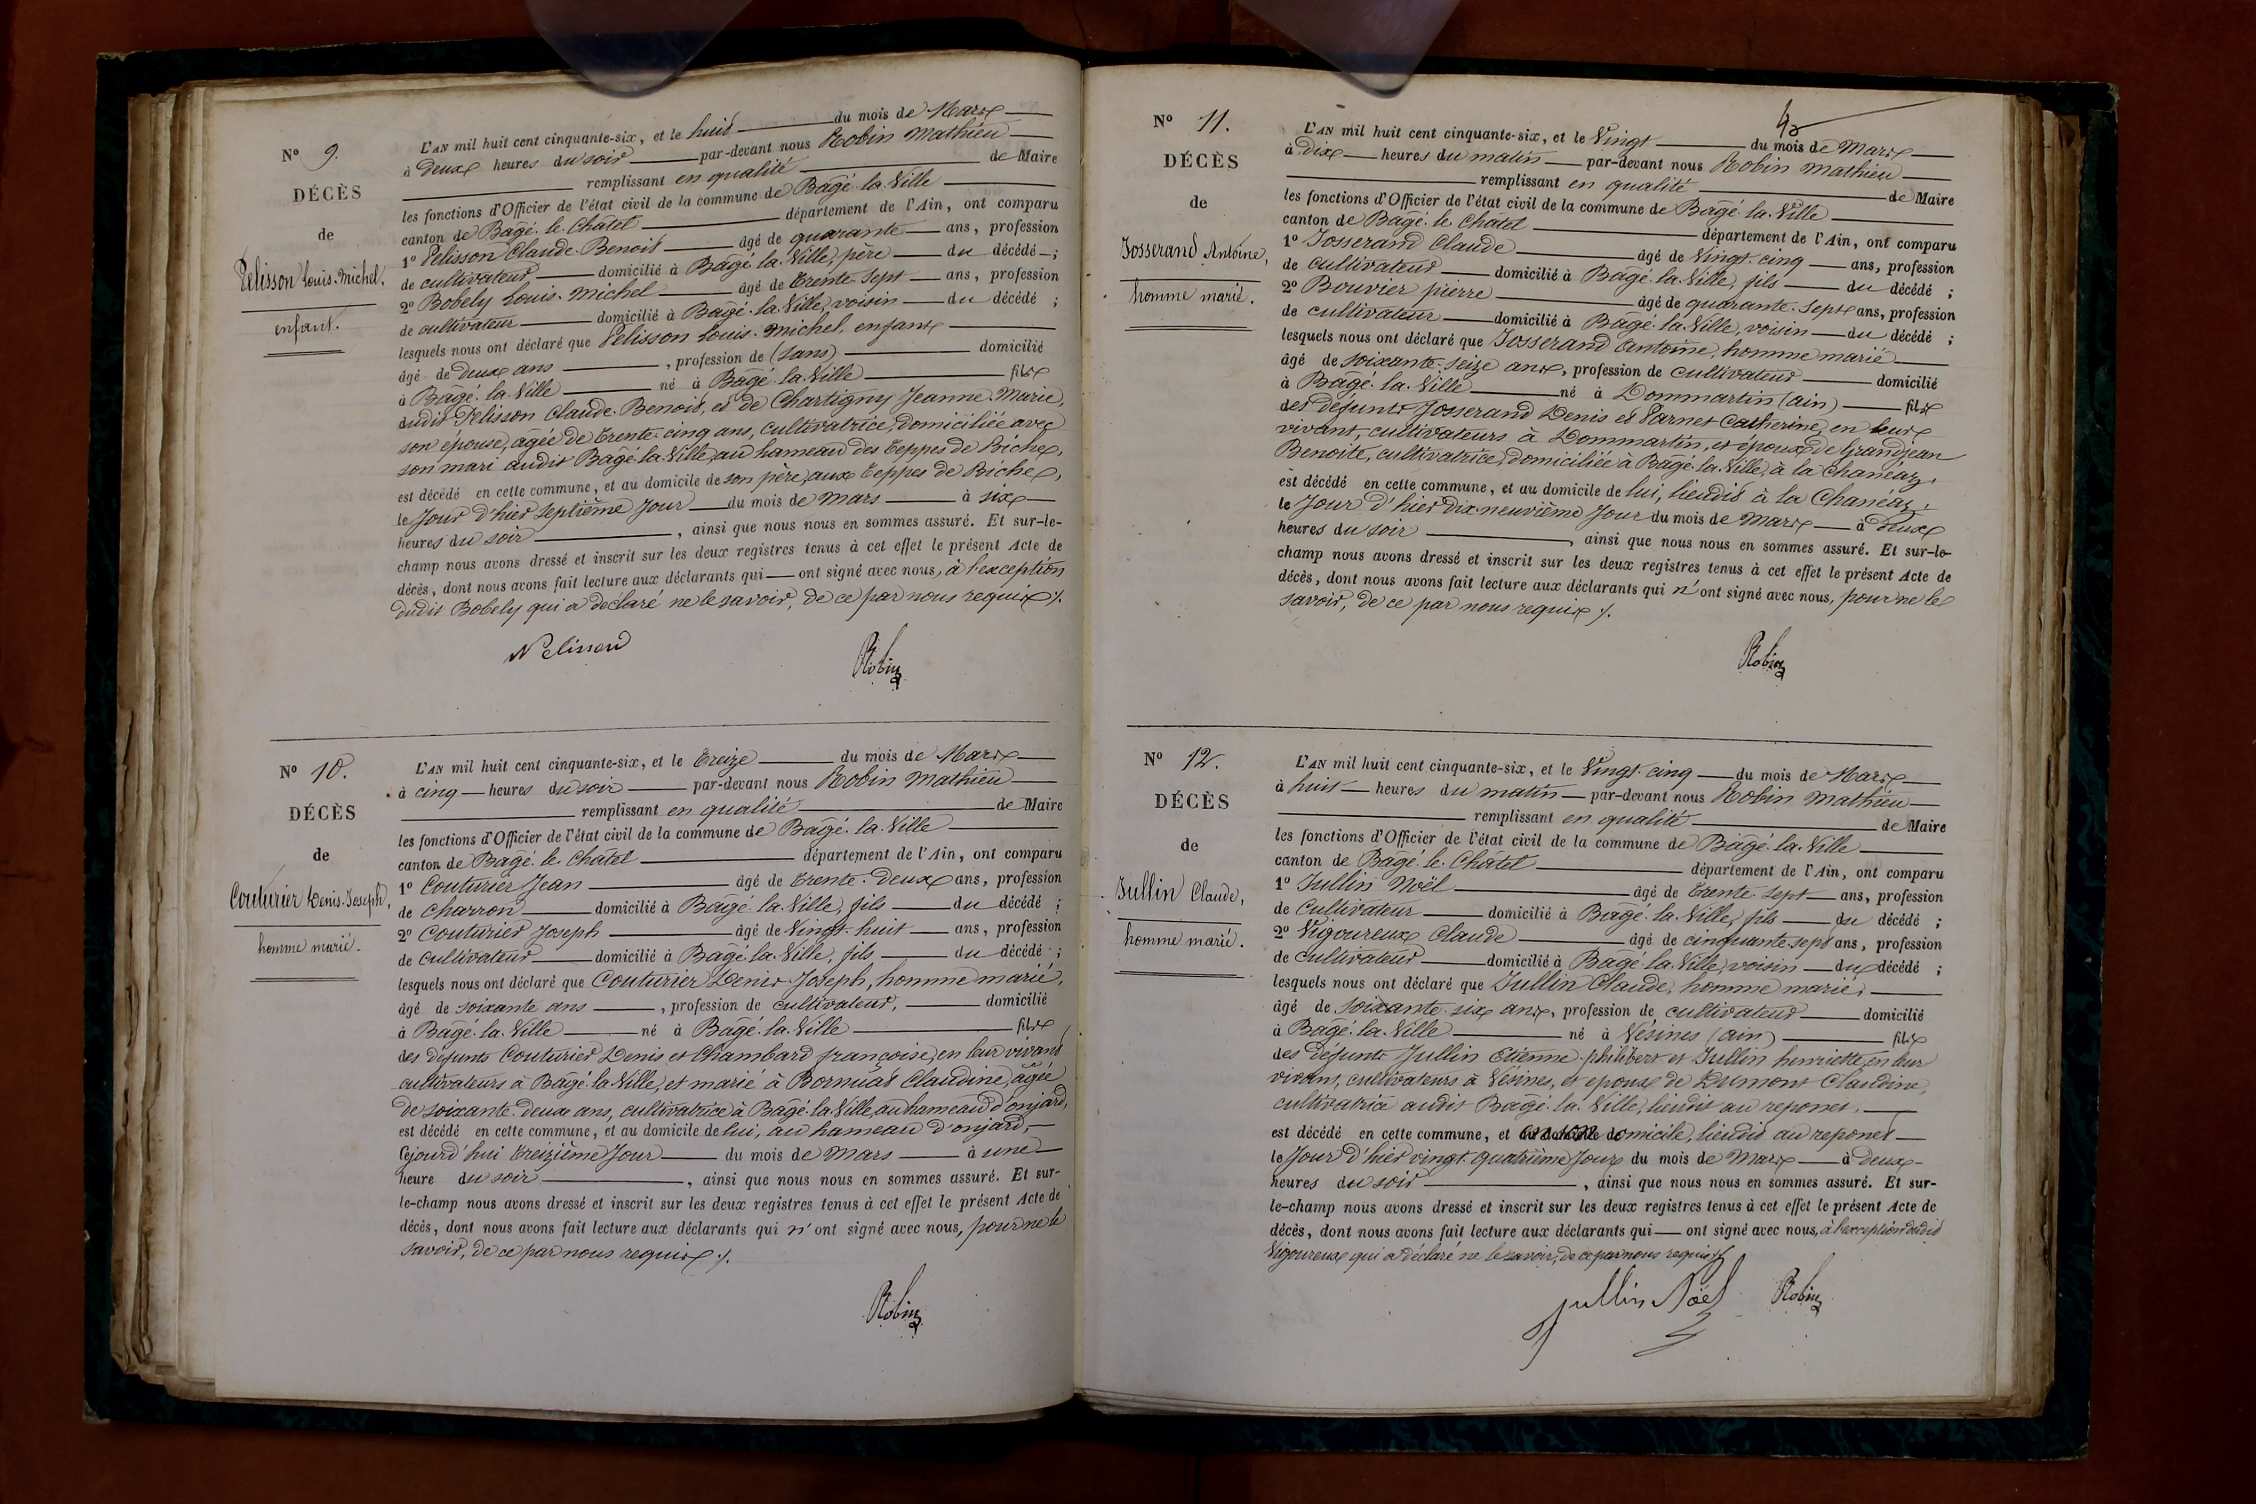 N° 9.
DÉCÈS
de
Pelisson Louis-Michel,
enfant.
L'AN mil huit cent cinquante-six, et le huit du mois de Mars
à deux heures du soir par-devant nous Robin Mathieu
remplissant en qualité de Maire
les fonctions d'Officier de l'état civil de la commune de Bâgé-la-Ville
canton de Bâgé-le-Châtel département de l'Ain, ont comparu
1° Pelisson Claude-Benoit âgé de quarante ans, profession
de cultivateur domicilié à Bâgé-la-Ville, père du décédé;
2° Bobely Louis-Michel âgé de trente-sept ans, profession
de cultivateur domicilié à Bâgé-la-Ville, voisin du décédé;
lesquels nous ont déclaré que Pelisson Louis-Michel, enfant
âgé de deux ans, profession de (sans) domicilié
à Bâgé-la-Ville né à Bâgé-la-Ville fils
dudit Pelisson Claude-Benoit, et de Chartigny Jeanne-Marie,
son épouse, âgée de trente-cinq ans, cultivatrice, domiciliée avec
son mari audit Bâgé-la-Ville, au hameau des teppes de Biches,
est décédé en cette commune, et au domicile de son père, aux teppes de Biches,
le Jour d'hier septième Jour du mois de Mars à six
heures du soir, ainsi que nous nous en sommes assuré. Et sur-le-
champ nous avons dressé et inscrit sur les deux registres tenus à cet effet le présent Acte de
décès, dont nous avons fait lecture aux déclarants qui ont signé avec nous, à l'exception
dudit Bobely qui a déclaré ne le savoir, de ce par nous requis ./.
Pelisson Robin
N° 10.
DÉCÈS
de
Couturier Denis-Joseph,
homme marié.
L'AN mil huit cent cinquante-six, et le treize du mois de Mars
à cinq heures du soir par-devant nous Robin Mathieu
remplissant en qualité de Maire
les fonctions d'Officier de l'état civil de la commune de Bâgé-la-Ville
canton de Bâgé-le-Châtel département de l'Ain, ont comparu
1° Couturier Jean âgé de trente-deux ans, profession
de Charron domicilié à Bâgé-la-Ville, fils du décédé;
2° Couturier Joseph âgé de Vingt-huit ans, profession
de cultivateur domicilié à Bâgé-la-Ville, fils du décédé;
lesquels nous ont déclaré que Couturier Denis-Joseph, homme marié,
âgé de soixante ans, profession de cultivateur, domicilié
à Bâgé-la-Ville né à Bâgé-la-Ville fils
des défunts Couturier Denis et Chambard françoise, en leur vivant
cultivateurs à Bâgé-la-Ville, et marié à Bornuat Claudine, âgée
de soixante-deux ans, cultivatrice à Bâgé-la-Ville, au hameau d'onjard,
est décédé en cette commune, et au domicile de lui, au hameau d'onjard,
Cejourd'hui treizième Jour du mois de Mars à une
heure du soir, ainsi que nous nous en sommes assuré. Et sur-
le-champ nous avons dressé et inscrit sur les deux registres tenus à cet effet le présent Acte de
décès, dont nous avons fait lecture aux déclarants qui n'ont signé avec nous, pour ne le
savoir, de ce par nous requis ./.
Robin
N° 11.
DÉCÈS
de
Josserand Antoine,
homme marié.
L'AN mil huit cent cinquante-six, et le Vingt du mois de Mars
à dix heures du matin par-devant nous Robin Mathieu
remplissant en qualité de Maire
les fonctions d'Officier de l'état civil de la commune de Bâgé-la-Ville
canton de Bâgé-le-Châtel département de l'Ain, ont comparu
1° Josserand Claude âgé de Vingt-cinq ans, profession
de cultivateur domicilié à Bâgé-la-Ville, fils du décédé;
2° Bouvier pierre âgé de quarante-sept ans, profession
de cultivateur domicilié à Bâgé-la-Ville, voisin du décédé;
lesquels nous ont déclaré que Josserand Antoine, homme marié
âgé de soixante-seize ans, profession de cultivateur domicilié
à Bâgé-la-Ville né à Dommartin (ain) fils
des défunts Josserand Denis et Varnet Catherine, en leur
vivant, cultivateurs à Dommartin, et époux de Grandjean
Benoite, cultivatrice, domiciliée à Bâgé-la-Ville, à la Chanéaz,
est décédé en cette commune, et au domicile de lui, lieudit à la Chanéaz,
le Jour d'hier dix-neuvième Jour du mois de Mars à deux
heures du soir, ainsi que nous nous en sommes assuré. Et sur-le-
champ nous avons dressé et inscrit sur les deux registres tenus à cet effet le présent Acte de
décès, dont nous avons fait lecture aux déclarants qui n'ont signé avec nous, pour ne le
savoir, de ce par nous requis ./.
Robin
N° 12.
DÉCÈS
de
Jullin Claude,
homme marié.
L'AN mil huit cent cinquante-six, et le Vingt-cinq du mois de Mars
à huit heures du matin par-devant nous Robin Mathieu
remplissant en qualité de Maire
les fonctions d'Officier de l'état civil de la commune de Bâgé-la-Ville
canton de Bâgé-le-Châtel département de l'Ain, ont comparu
1° Jullin Noël âgé de trente-sept ans, profession
de Cultivateur domicilié à Bâgé-la-Ville, fils du décédé;
2° Vigoureux Claude âgé de cinquante-sept ans, profession
de cultivateur domicilié à Bâgé-la-Ville, voisin du décédé;
lesquels nous ont déclaré que Jullin Claude, homme marié,
âgé de soixante-six ans, profession de cultivateur domicilié
à Bâgé-la-Ville né à Vésines (ain) fils
des défunts Jullin Etienne-philibert et Jullin henriette, en leur
vivant, cultivateurs à Vésines, et époux de Dumont Claudine,
cultivatrice audit Bâgé-la-Ville, lieudit au reponet,
est décédé en cette commune, et en son domicile, lieudit au reponet
le Jour d'hier vingt-quatrième Jour du mois de Mars à deux
heures du soir, ainsi que nous nous en sommes assuré. Et sur-
le-champ nous avons dressé et inscrit sur les deux registres tenus à cet effet le présent Acte de
décès, dont nous avons fait lecture aux déclarants qui ont signé avec nous, à l'exception dudit
Vigoureux qui a déclaré ne le savoir, de ce par nous requis ./.
Jullin Noël Robin